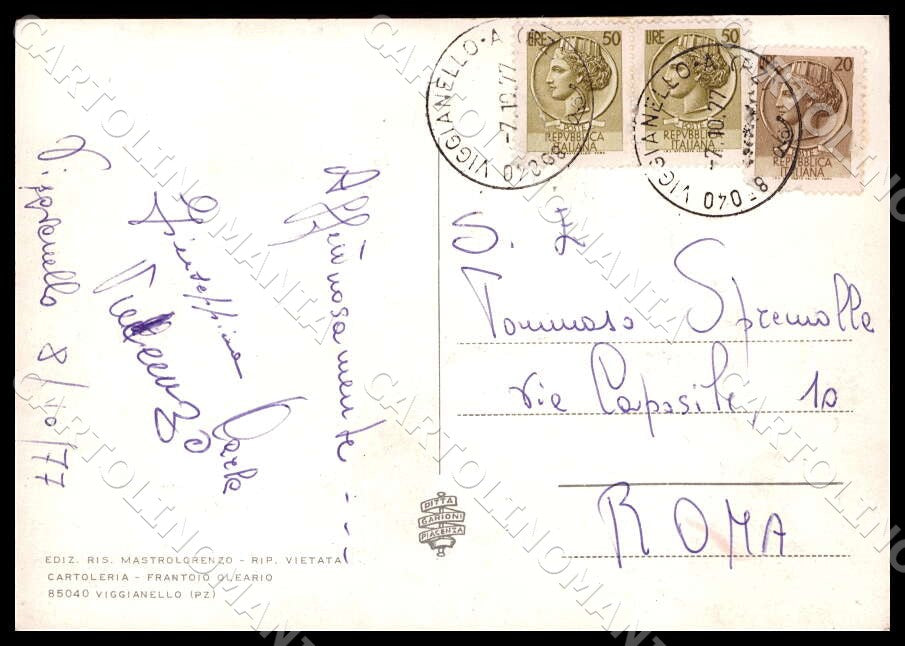 LIRE 50
POSTE
REPVBBLICA
ITALIANA
LIRE 50
POSTE
REPVBBLICA
ITALIANA
LIRE 20
POSTE
REPVBBLICA
ITALIANA
85040 VIGGIANELLO-A (PZ)
-7.10.77
85040 VIGGIANELLO-A (PZ)
-7.10.77
Viggianello 8/10/77
Giuseppina
Carla
Affettuosamente ....
S. Z
Tommaso Spremolla
via Caposile, 10
ROMA
DITTA
GARIONI
PIACENZA
EDIZ. RIS. MASTROLORENZO - RIP. VIETATA
CARTOLERIA - FRANTOIO OLEARIO
85040 VIGGIANELLO (PZ)
CARTOLINOMANIA